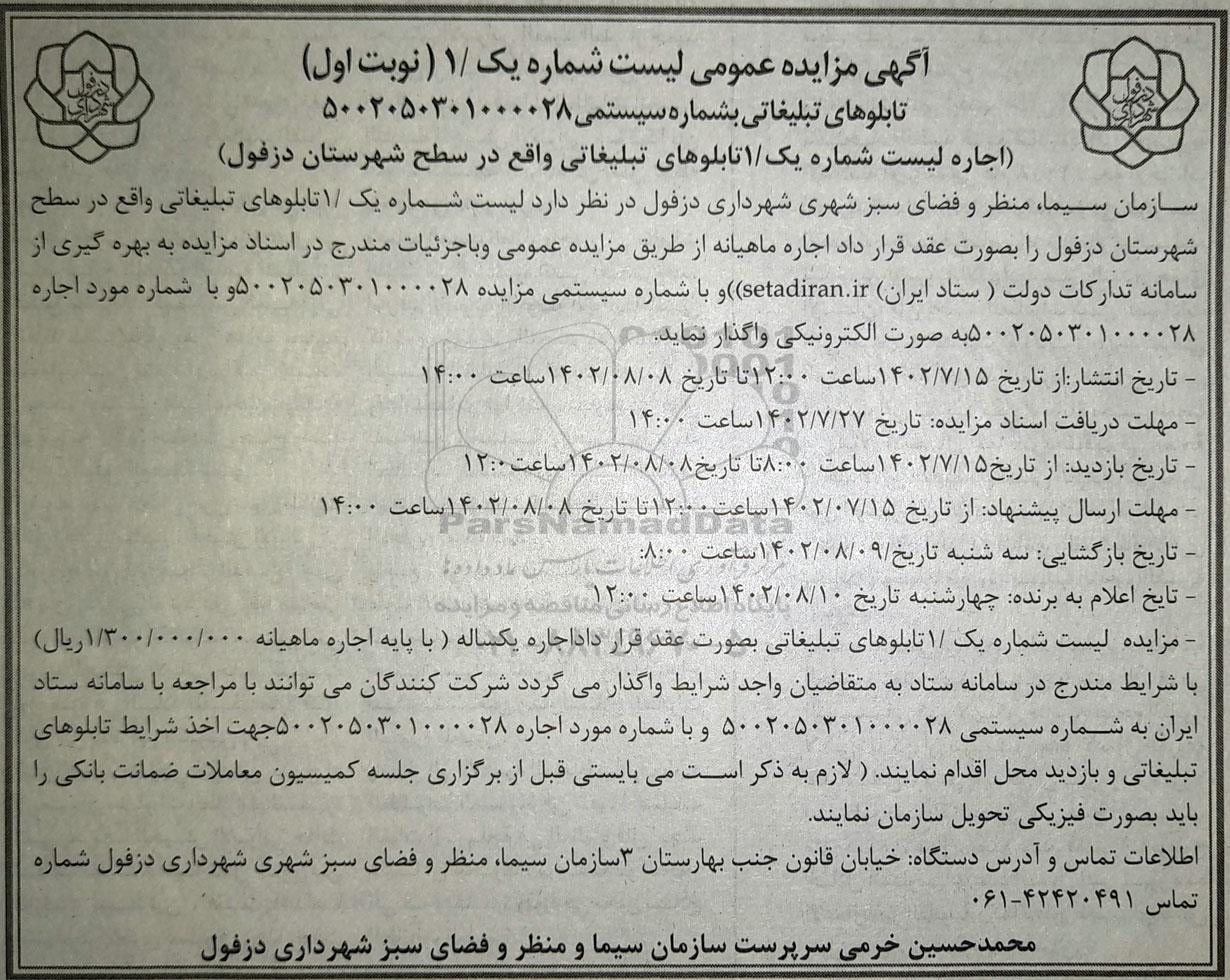 آگهی مزایده عمومی لیست شماره یک /۱ (نوبت اول)
تابلوهای تبلیغاتی بشماره سیستمی ۵۰۰۲۰۵۰۳۰۱۰۰۰۰۲۸
(اجاره لیست شماره یک/۱تابلوهای تبلیغاتی واقع در سطح شهرستان دزفول)
سازمان سیما، منظر و فضای سبز شهری شهرداری دزفول در نظر دارد لیست شماره یک /۱تابلوهای تبلیغاتی واقع در سطح
شهرستان دزفول را بصورت عقد قرار داد اجاره ماهیانه از طریق مزایده عمومی وباجزئیات مندرج در اسناد مزایده به بهره گیری از
سامانه تدارکات دولت ( ستاد ایران) setadiran.ir))و با شماره سیستمی مزایده ۵۰۰۲۰۵۰۳۰۱۰۰۰۰۲۸و با شماره مورد اجاره
۵۰۰۲۰۵۰۳۰۱۰۰۰۰۲۸به صورت الکترونیکی واگذار نماید.
- تاریخ انتشار:از تاریخ ۱۴۰۲/۷/۱۵ساعت ۱۲:۰۰تا تاریخ ۱۴۰۲/۰۸/۰۸ساعت ۱۴:۰۰
- مهلت دریافت اسناد مزایده: تاریخ ۱۴۰۲/۷/۲۷ساعت ۱۴:۰۰
- تاریخ بازدید: از تاریخ۱۴۰۲/۷/۱۵ساعت ۸:۰۰تا تاریخ۱۴۰۲/۰۸/۰۸ساعت۱۲:۰
- مهلت ارسال پیشنهاد: از تاریخ ۱۴۰۲/۰۷/۱۵ساعت۱۲:۰۰تا تاریخ ۱۴۰۲/۰۸/۰۸ساعت ۱۴:۰۰
- تاریخ بازگشایی: سه شنبه تاریخ/۱۴۰۲/۰۸/۰۹ساعت ۸:۰۰:
- تایخ اعلام به برنده: چهارشنبه تاریخ ۱۴۰۲/۰۸/۱۰ساعت ۱۲:۰۰
- مزایده لیست شماره یک /۱تابلوهای تبلیغاتی بصورت عقد قرار داداجاره یکساله ( با پایه اجاره ماهیانه ۱/۳۰۰/۰۰۰/۰۰۰ریال)
با شرایط مندرج در سامانه ستاد به متقاضیان واجد شرایط واگذار می گردد شرکت کنندگان می توانند با مراجعه با سامانه ستاد
ایران به شماره سیستمی ۵۰۰۲۰۵۰۳۰۱۰۰۰۰۲۸ و با شماره مورد اجاره ۵۰۰۲۰۵۰۳۰۱۰۰۰۰۲۸جهت اخذ شرایط تابلوهای
تبلیغاتی و بازدید محل اقدام نمایند. ( لازم به ذکر است می بایستی قبل از برگزاری جلسه کمیسیون معاملات ضمانت بانکی را
باید بصورت فیزیکی تحویل سازمان نمایند.
اطلاعات تماس و آدرس دستگاه: خیابان قانون جنب بهارستان ۳سازمان سیما، منظر و فضای سبز شهری شهرداری دزفول شماره
تماس ۴۲۴۲۰۴۹۱-۰۶۱
محمدحسین خرمی سرپرست سازمان سیما و منظر و فضای سبز شهرداری دزفول
ParsNamadData
پایگاه اطلاع رسانی مناقصه و مزایده